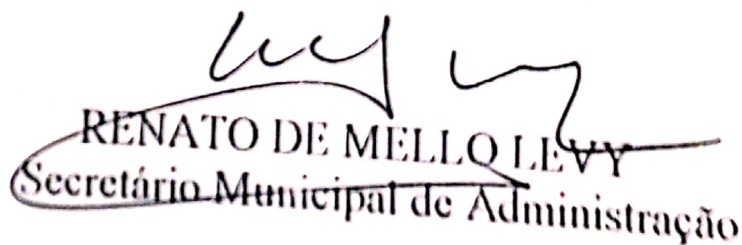 RENATO DE MELLO LEVY
Secretário Municipal de Administração